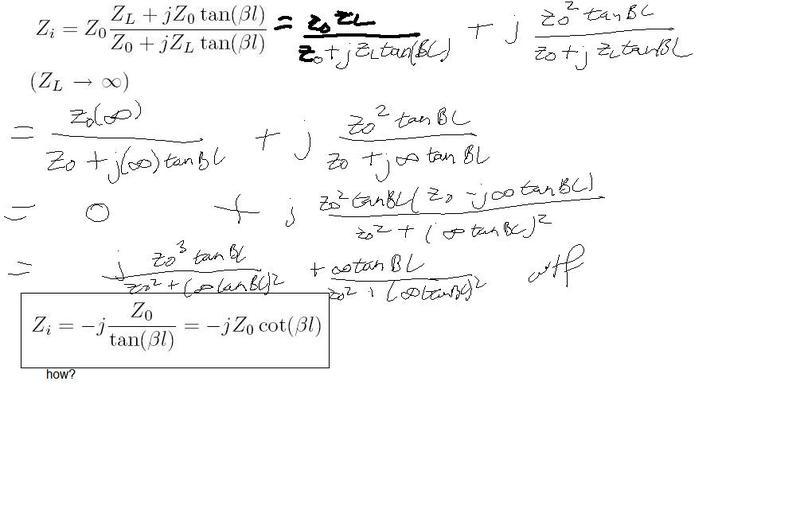 Z_i = Z_0 \frac{Z_L + jZ_0 \tan(\beta l)}{Z_0 + jZ_L \tan(\beta l)} = \frac{Z_0 Z_L}{Z_0 + j Z_L \tan(BL)} + j \frac{Z_0^2 \tan BL}{Z_0 + j Z_L \tan BL}
(Z_L → ∞)
= \frac{Z_0(∞)}{Z_0 + j(∞) \tan BL} + j \frac{Z_0^2 \tan BL}{Z_0 + j ∞ \tan BL}
= 0 + j \frac{Z_0^2 \tan BL (Z_0 - j ∞ \tan BL)}{Z_0^2 + (∞ \tan BL)^2}
= j \frac{Z_0^3 \tan BL}{Z_0^2 + (∞ \tan BL)^2} + \frac{∞ \tan BL}{Z_0^2 + (∞ \tan BL)^2} wtf
Z_i = -j \frac{Z_0}{\tan(\beta l)} = -jZ_0 \cot(\beta l)
how?